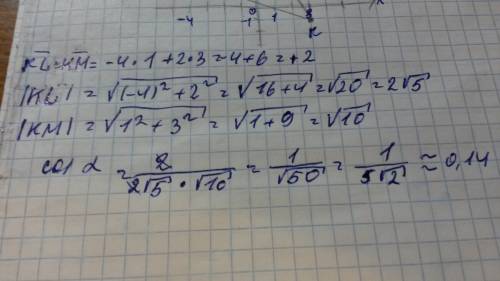 -4 -1 0 1 x
K
K̅L̅ · K̅M̅ = -4 · 1 + 2 · 3 = 4 + 6 = +2
|KL| = √((-4)² + 2²) = √(16+4) = √20 = 2√5
|KM| = √(1² + 3²) = √(1+9) = √10
cos α = 2/(2√5 · √10) = 1/√50 = 1/(5√2) ≈ 0,14